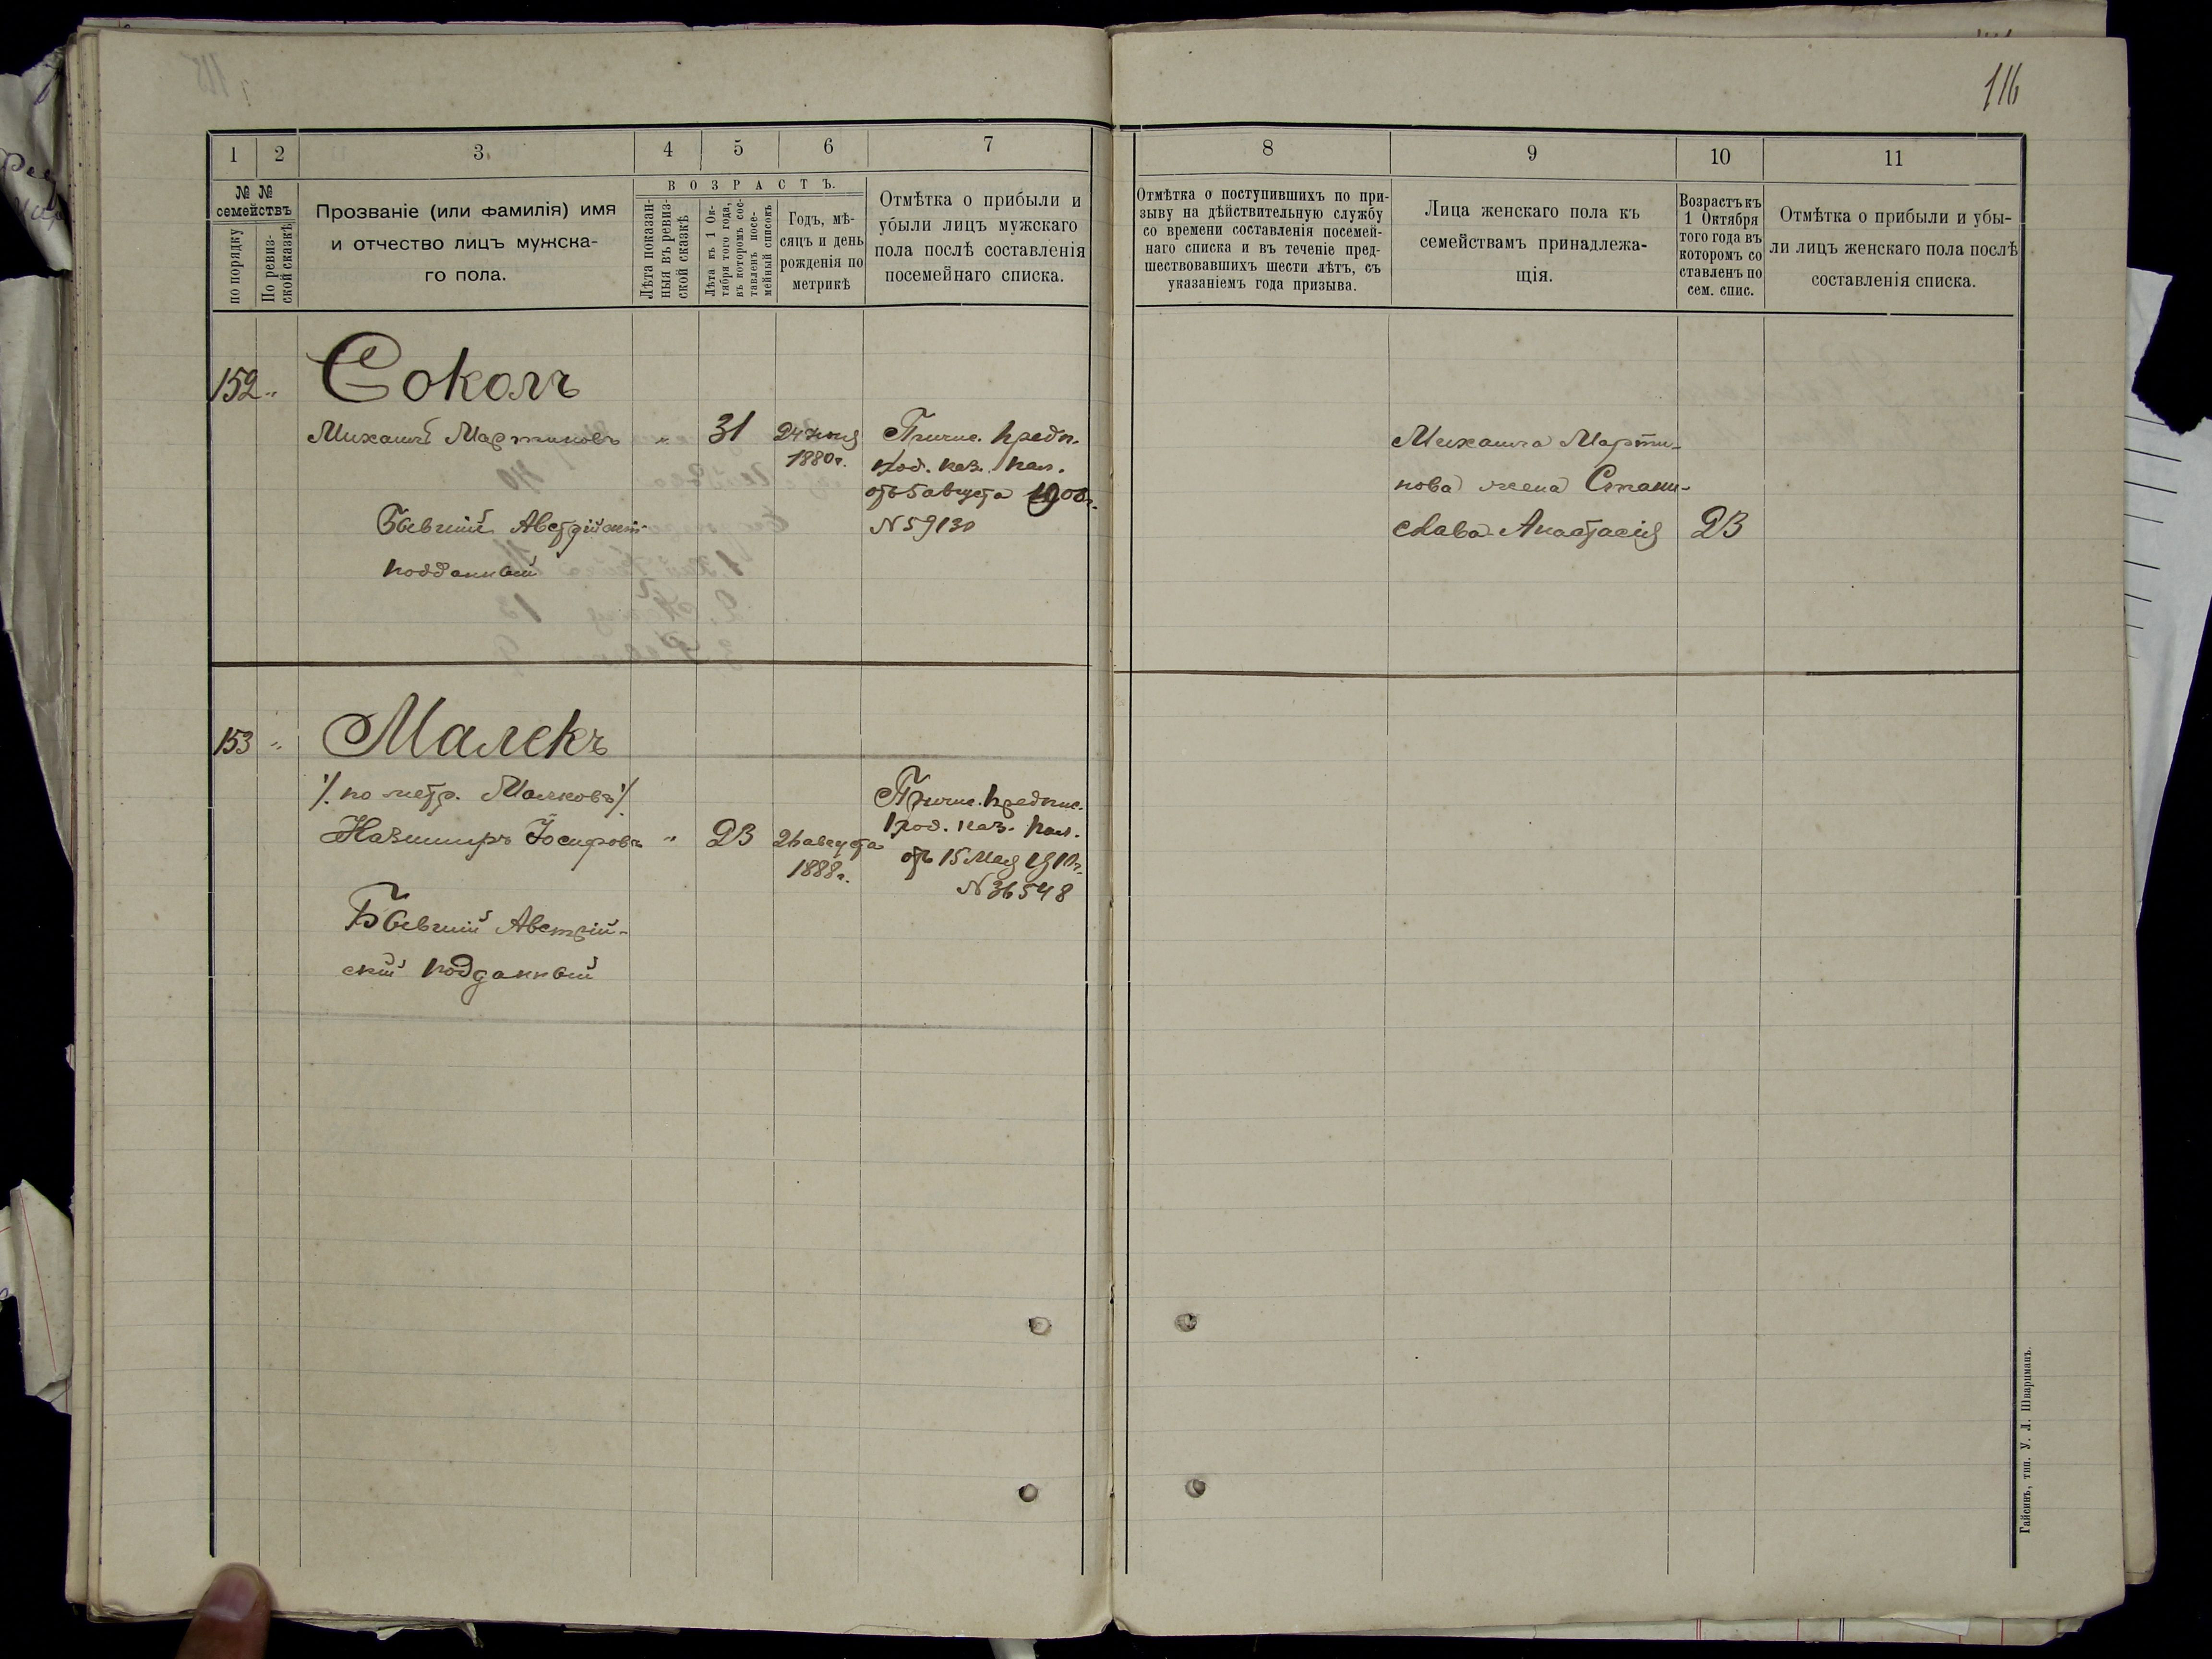 116
1 2 3 4 5 6 7 8 9 10 11
№ № семействъ
по порядку
По ревиз-
ской сказкѣ
Прозваніе (или фамилія) имя
и отчество лицъ мужска-
го пола.
ВОЗРАСТЪ.
Лѣта показан-
ныя въ ревиз-
ской сказкѣ
Лѣта къ 1 Ок-
тября того года,
въ которомъ сос-
тавленъ посе-
мейный списокъ
Годъ, мѣ-
сяцъ и день
рожденія по
метрикѣ
Отмѣтка о прибыли и
убыли лицъ мужскаго
пола послѣ составленія
посемейнаго списка.
Отмѣтка о поступившихъ по при-
зыву на дѣйствительную службу
со времени составленія посемей-
наго списка и въ теченіе пред-
шествовавшихъ шести лѣтъ, съ
указаніемъ года призыва.
Лица женскаго пола къ
семействамъ принадлежа-
щія.
Возрастъ къ
1 Октября
того года въ
которомъ со
ставленъ по
сем. спис.
Отмѣтка о прибыли и убы-
ли лицъ женскаго пола послѣ
составленія списка.
152 "
Соколъ
Михаилъ Мартиновъ " 31
1880 г.
Причис. предп.
под. каз. пал.
отъ 5 августа
N 59130
Бывшій Австрійскій
подданный
Михаила Марти-
нова жена Стани-
слава-Анастасія 23
153 "
Малекъ
/. по метр. Малковъ /.
Казимиръ Іосифовъ " 23
августа
1888 г.
Причис. предпис.
под. каз. пал.
отъ 15 Мая 1910 г.
N 36548
Бывшій Австрій-
скій подданный
Гайсинъ, тип. У. Л. Шварцманъ.